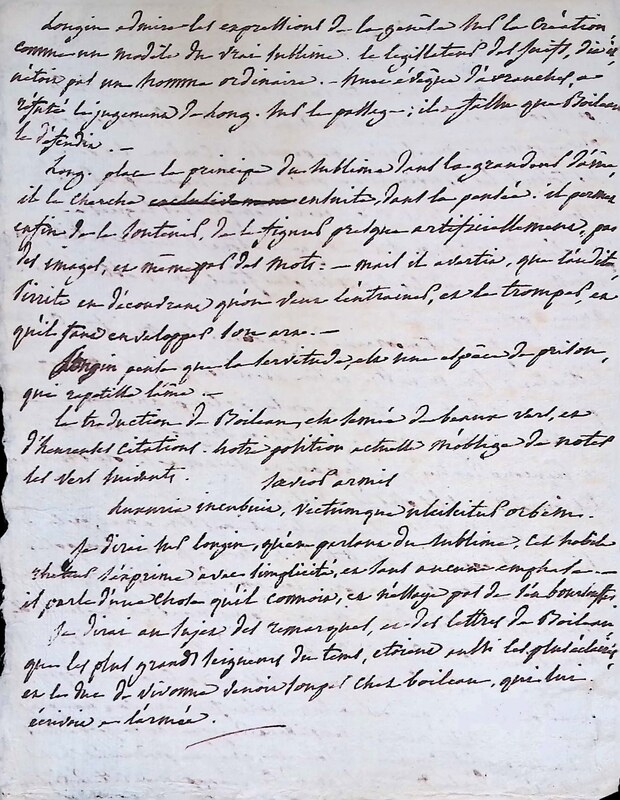 Longin admire les expressions de la genèse sur la création
comme un modèle du vrai sublime. le législateur des juifs, dit il
n'étoit pas un homme ordinaire. – huet évêque d'avranches, a
réfuté le jugement de Long. sur le passage ; il a fallu que Boileau
le défendit. –
Long. place le principe du sublime dans la grandeur d'âme
il le cherche ensuite, dans la pensée. il permet
enfin de le soutenir, de le figurer presque artificiellement, par
des images, et même par des mots : – mais il avertit, que l'audit.
s'irrite en découvrant qu'on veut l'entrainer, et le tromper, et
qu'il faut envelopper son art. –
Longin pense que la servitude, est une espèce de prison,
qui rapetisse l'âme –
la traduction de Boileau, est semée de beaux vers, et
d'heureuses citations. notre position actuelle m'oblige de noter
les vers suivants. saevior armis
luxuria incubuit, victumque ulciscitur orbem.
Je dirai sur longin, qu'en parlant du sublime, cet habile
rhéteur s'exprime avec simplicité, et sans aucune emphase –
il parle d'une chose qu'il connoit, et n'essaye pas de s'en boursouffler.
Je dirai au sujet des remarques, et des lettres de Boileau
que les plus grands seigneurs du tems, etoient aussi les plus éclairés
et le duc de vivonne venoit souper chez boileau, qui lui
écrivoit a l'armée.